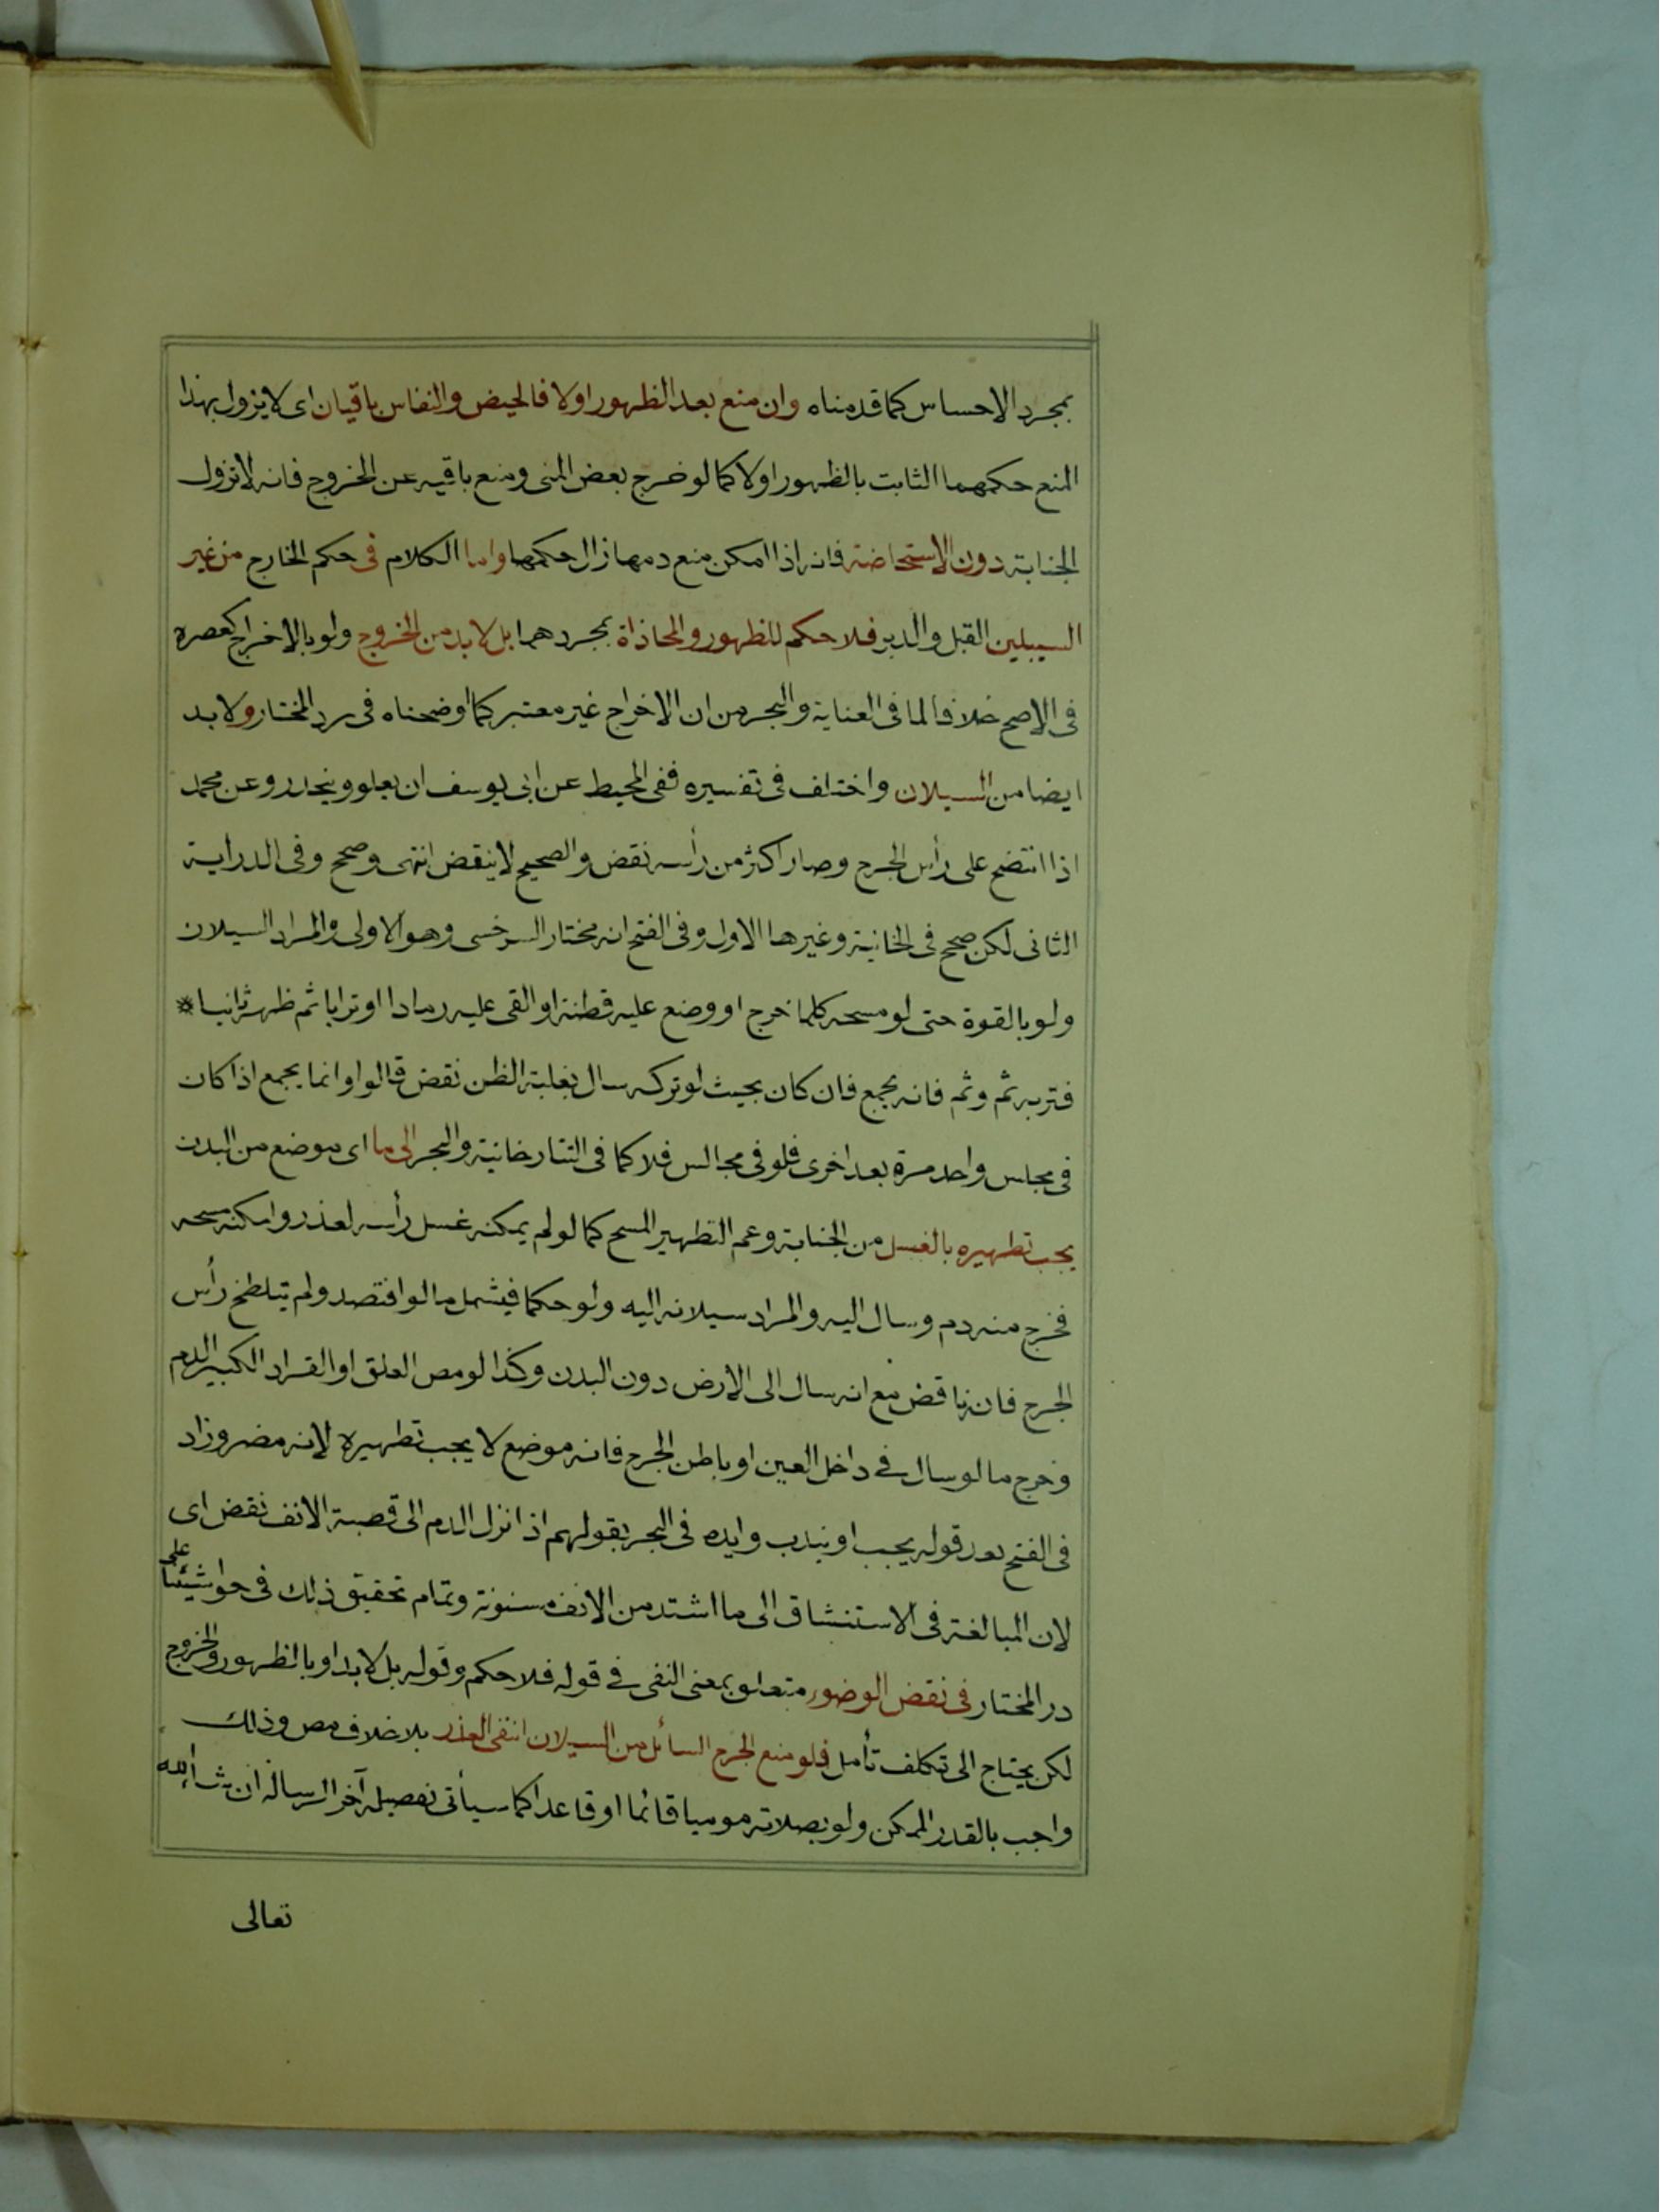 بمجرد الاحساس كما قدمناه وان منع بعد الظهور اولا فالحيض والنفاس باقيان اى لا يزول بهذا
المنع حكمهما الثابت بالظهور اولا كما لو خرج بعض المنى ومنع باقيه عن الخروج فانه لا تزول
الجنابة دون الاستحاضة فانه اذا امكن منع دمها زال حكمها واما الكلام فى حكم الخارج من غير
السبيلين القبل والدبر فلا حكم للظهور والمحاذاة بمجردهما بل لا بد من الخروج ولو بالاخراج كعصره
فى الاصح خلافا لما فى العناية والبحر من ان الاخراج غير معتبر كما اوضحناه فى رد المختار ولا بد
ايضا من السيلان واختلف فى تفسيره ففى المحيط عن ابى يوسف ان يعلو وينحدر وعن محمد
اذا انتضح على رأس الجرح وصار اكثر من رأسه نقض والصحيح لا ينقض انتهى وصحح وفى الدراية
الثانى لكن صحح فى الخانية وغيرها الاول وفى الفتح انه مختار السرخسى وهو الاولى والمراد السيلان
ولو بالقوة حتى لو مسحه كلما خرج او وضع عليه قطنة او القى عليه رمادا او ترابا ثم ظهر ثانيا *
فتربه ثم وثم فانه يجمع فان كان بحيث لو تركه سال بغلبة الظن نقض قالوا وانما يجمع اذا كان
فى مجلس واحد مرة بعد اخرى فلو فى مجالس فلا كما فى التتارخانية والبحر الى ما اى موضع من البدن
يجب تطهيره بالغسل من الجنابة وعم التطهير المسح كما لو لم يمكنه غسل رأسه لعذر وامكنه مسحه
فخرج منه دم وسال اليه والمراد سيلانه اليه ولو حكما فيشمل ما لو افتصد ولم يتلطخ رأس
الجرح فانه ناقض مع انه سال الى الارض دون البدن وكذا لو مص العلق او القراد الكبير الدم
وخرج ما لو سال فى داخل العين او باطن الجرح فانه موضع لا يجب تطهيره لانه مضر وزاد
فى الفتح بعد قوله يجب او يندب وايده فى البحر بقولهم اذا نزل الدم الى قصبة الانف نقض اى
لان المبالغة فى الاستنشاق الى ما اشتد من الانف مسنونة وتمام تحقيق ذلك فى حواشينا على
در المختار فى نقض الوضوء متعلق بمعنى النفى فى قوله فلا حكم وقوله بل لا بد او بالظهور والخروج
لكن يحتاج الى تكلف تأمل فلو منع الجرح السائل من السيلان انتفى العذر بلا خلاف مص وذلك
واجب بالقدر الممكن ولو بصلاته موميا قائما او قاعدا كما سيأتى تفصيله آخر الرسالة ان شاء الله
تعالى